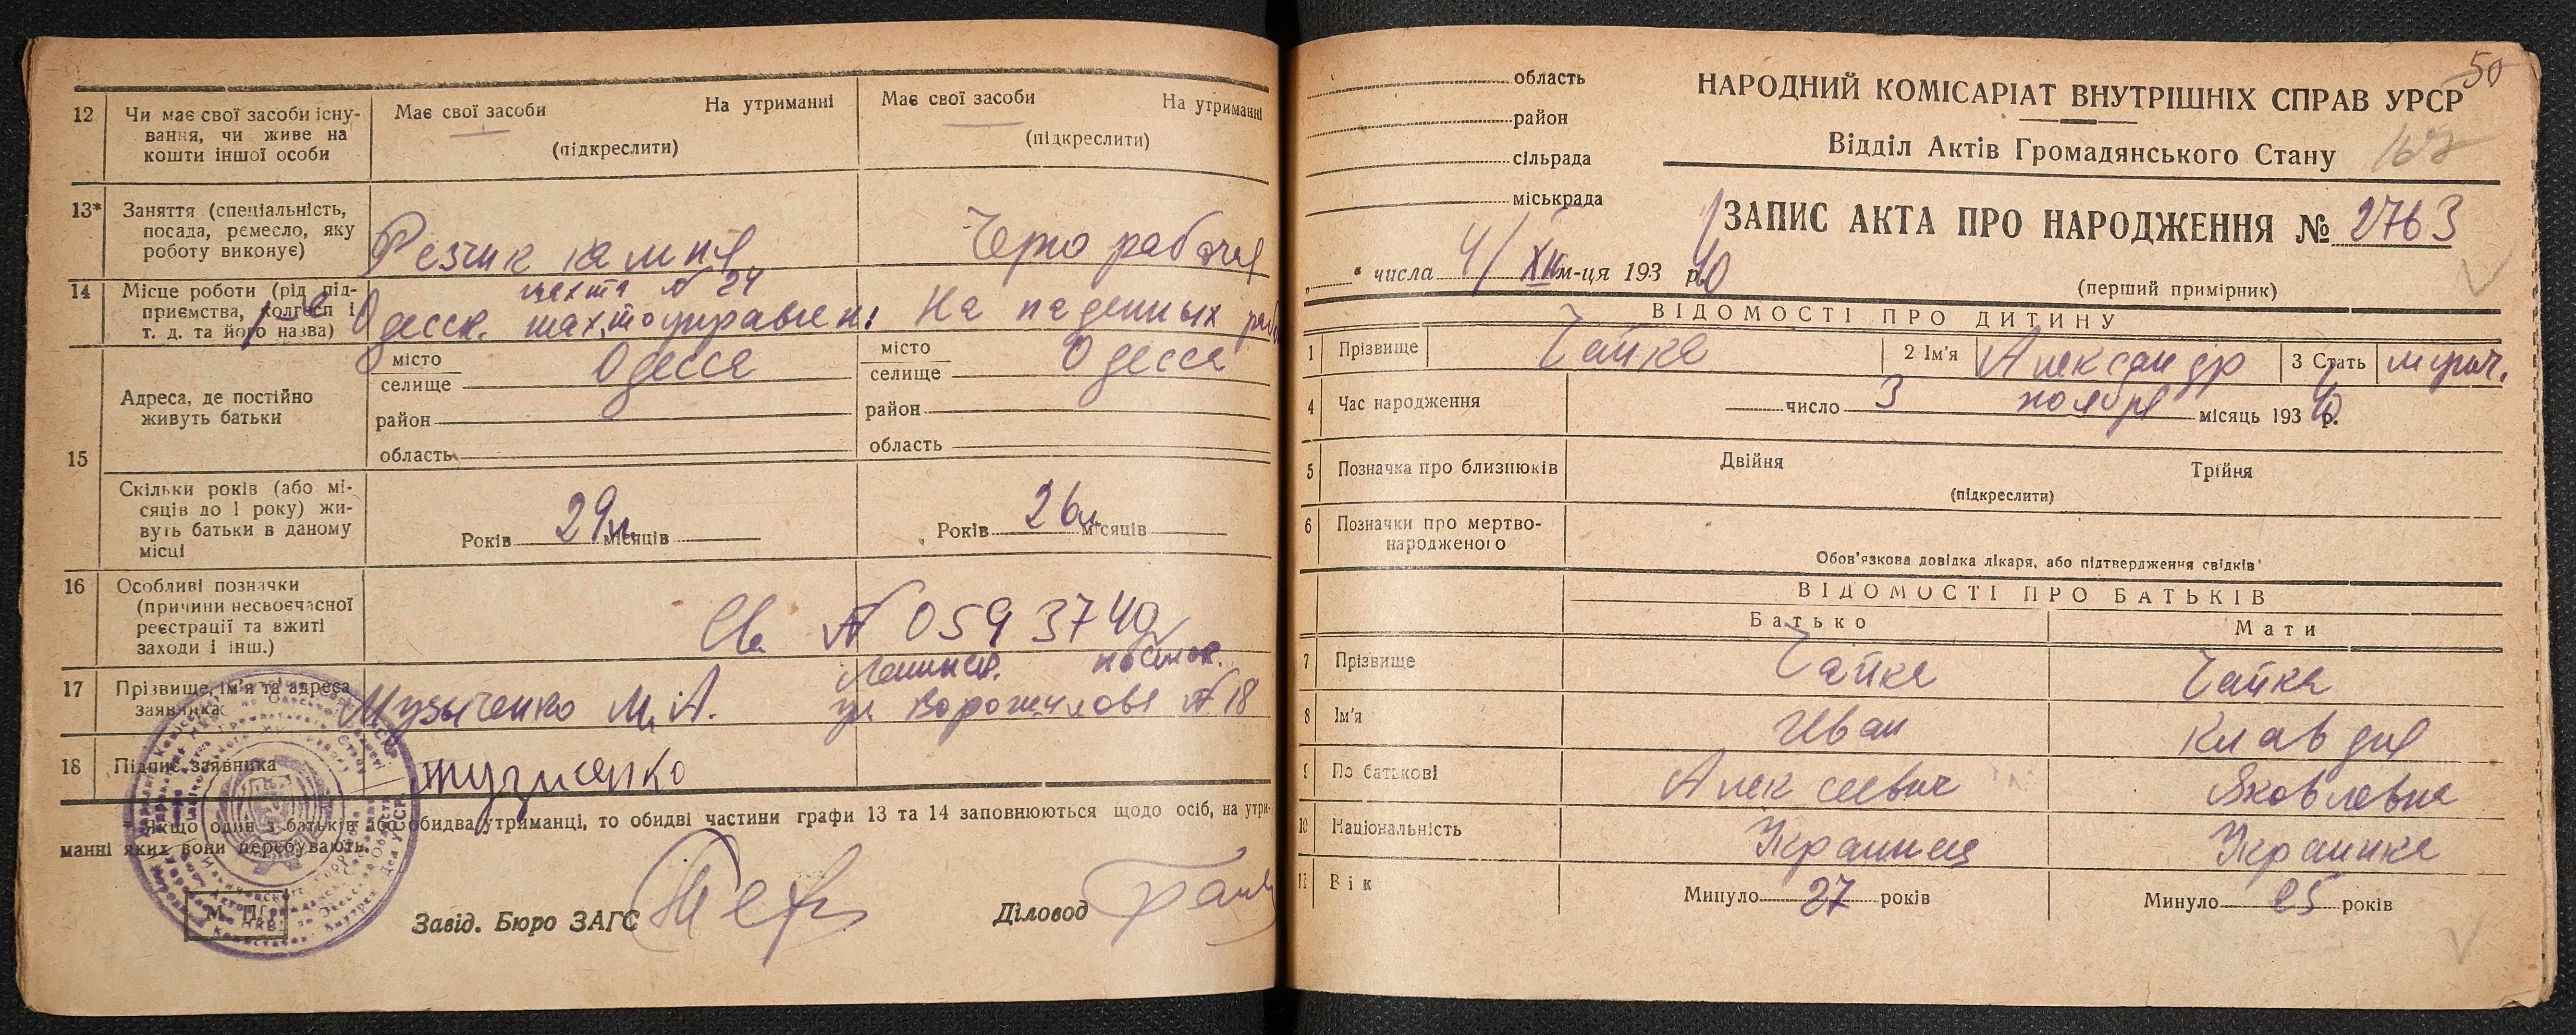 12 Чи має свої засоби існу-
вання, чи живе на
кошти іншої особи
Має свої засоби На утриманні
(підкреслити)
Має свої засоби На утриманні
(підкреслити)
13* Заняття (спеціальність,
посада, ремесло, яку
роботу виконує)
Резчик камня
Черно рабочая
14 Місце роботи (рід під-
приємства, колгосп і
т. д. та його назва)
шахта № 24
Одесск. шахтоуправлен:
На паденных раб
15 Адреса, де постійно
живуть батьки
місто
селище Одесса
район
область
місто
селище Одесса
район
область
Скільки років (або мі-
сяців до 1 року) жи-
вуть батьки в даному
місці
Років 29 л. місяців
Років 26 л. місяців
16 Особливі позначки
(причини несвоєчасної
реєстрації та вжиті
заходи і інш.)
Св. № 059 3740
17 Прізвище, ім'я та адреса
заявника
Музыченко М. А.
Ленинск.
ул Ворошилова № 18
18 Підпис заявника
Музиченко
* Якщо один з батьків або обидва утриманці, то обидві частини графи 13 та 14 заповнюються щодо осіб, на утри-
манні яких вони перебувають.
М. П.
Завід. Бюро ЗАГС
Діловод
50
область
район
сільрада
міськрада
НАРОДНИЙ КОМІСАРІАТ ВНУТРІШНІХ СПРАВ УРСР
Відділ Актів Громадянського Стану
ЗАПИС АКТА ПРО НАРОДЖЕННЯ № 2763
" числа 4/XII м-ця 193 р. 40
(перший примірник)
ВІДОМОСТІ ПРО ДИТИНУ
1 Прізвище Чайка 2 Ім'я Александр 3 Стать мужч.
4 Час народження число 3 ноября місяць 193 р. 40
5 Позначка про близнюків Двійня Трійня
(підкреслити)
6 Позначки про мертво-
народженого
Обов'язкова довідка лікаря, або підтвердження свідків
ВІДОМОСТІ ПРО БАТЬКІВ
Батько Мати
7 Прізвище Чайка Чайка
8 Ім'я Иван Клавдия
9 По батькові Алексеевич Яковлевна
10 Національність Украинец Украинка
11 Вік Минуло 27 років Минуло 25 років